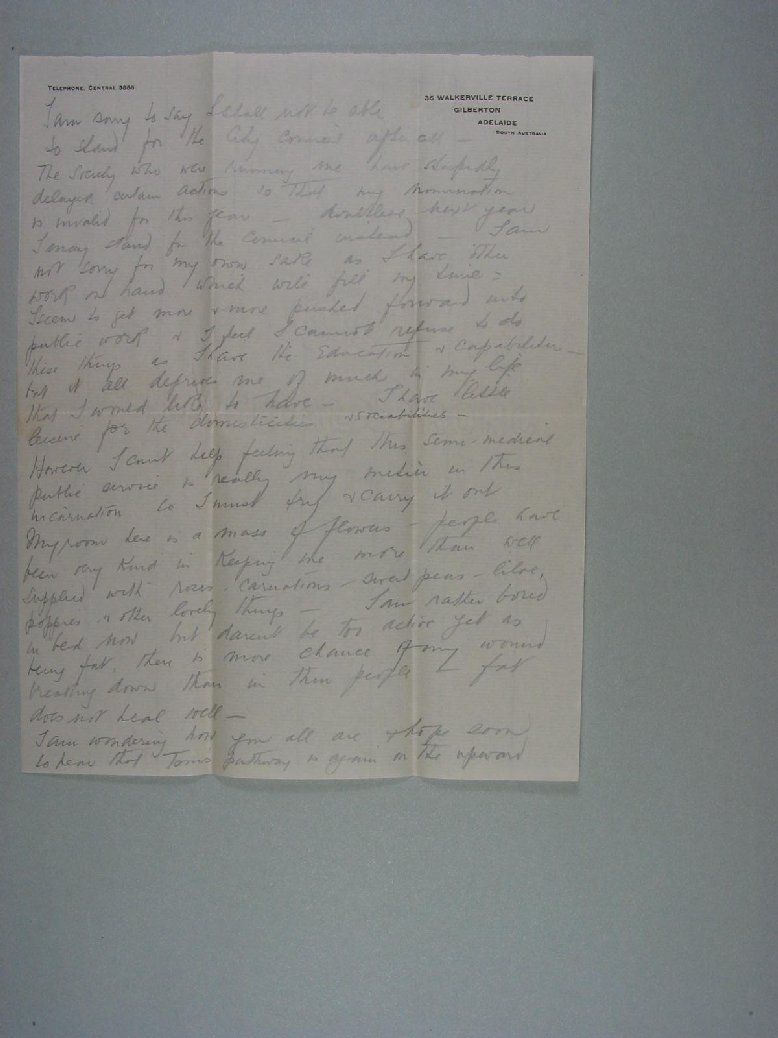 TELEPHONE, CENTRAL 3888.
35 WALKERVILLE TERRACE
GILBERTON
ADELAIDE
SOUTH AUSTRALIA
I am sorry to say I shall not be able
to stand for the City Council after all —
The Society who were running me have stupidly
delayed certain action so that my nomination
is invalid for this year — doubtless next year
I may stand for the Council instead — I am
not sorry for my own sake as I have other
work on hand which will fill my time =
I seem to get more & more pushed forward into
public work & I feel I cannot refuse to do
these things as I have the Education & capabilities —
but it all deprives me of much in my life
that I would like to have — I have little
leisure for the domesticities & sociabilities —
However I can't help feeling that this semi-medical
public service is really my metier in this
incarnation so I must try & carry it out
My room here is a mass of flowers — people have
been very kind in keeping me more than well
supplied with roses - carnations - sweet peas - lilac,
poppies & other lovely things — I am rather bored
in bed now but daren't be too active yet as
being fat, there is more chance of my wound
breaking down than in thin people — fat
does not heal well —
I am wondering how you all are & hope soon
to hear that Tom's pathway is again on the upward